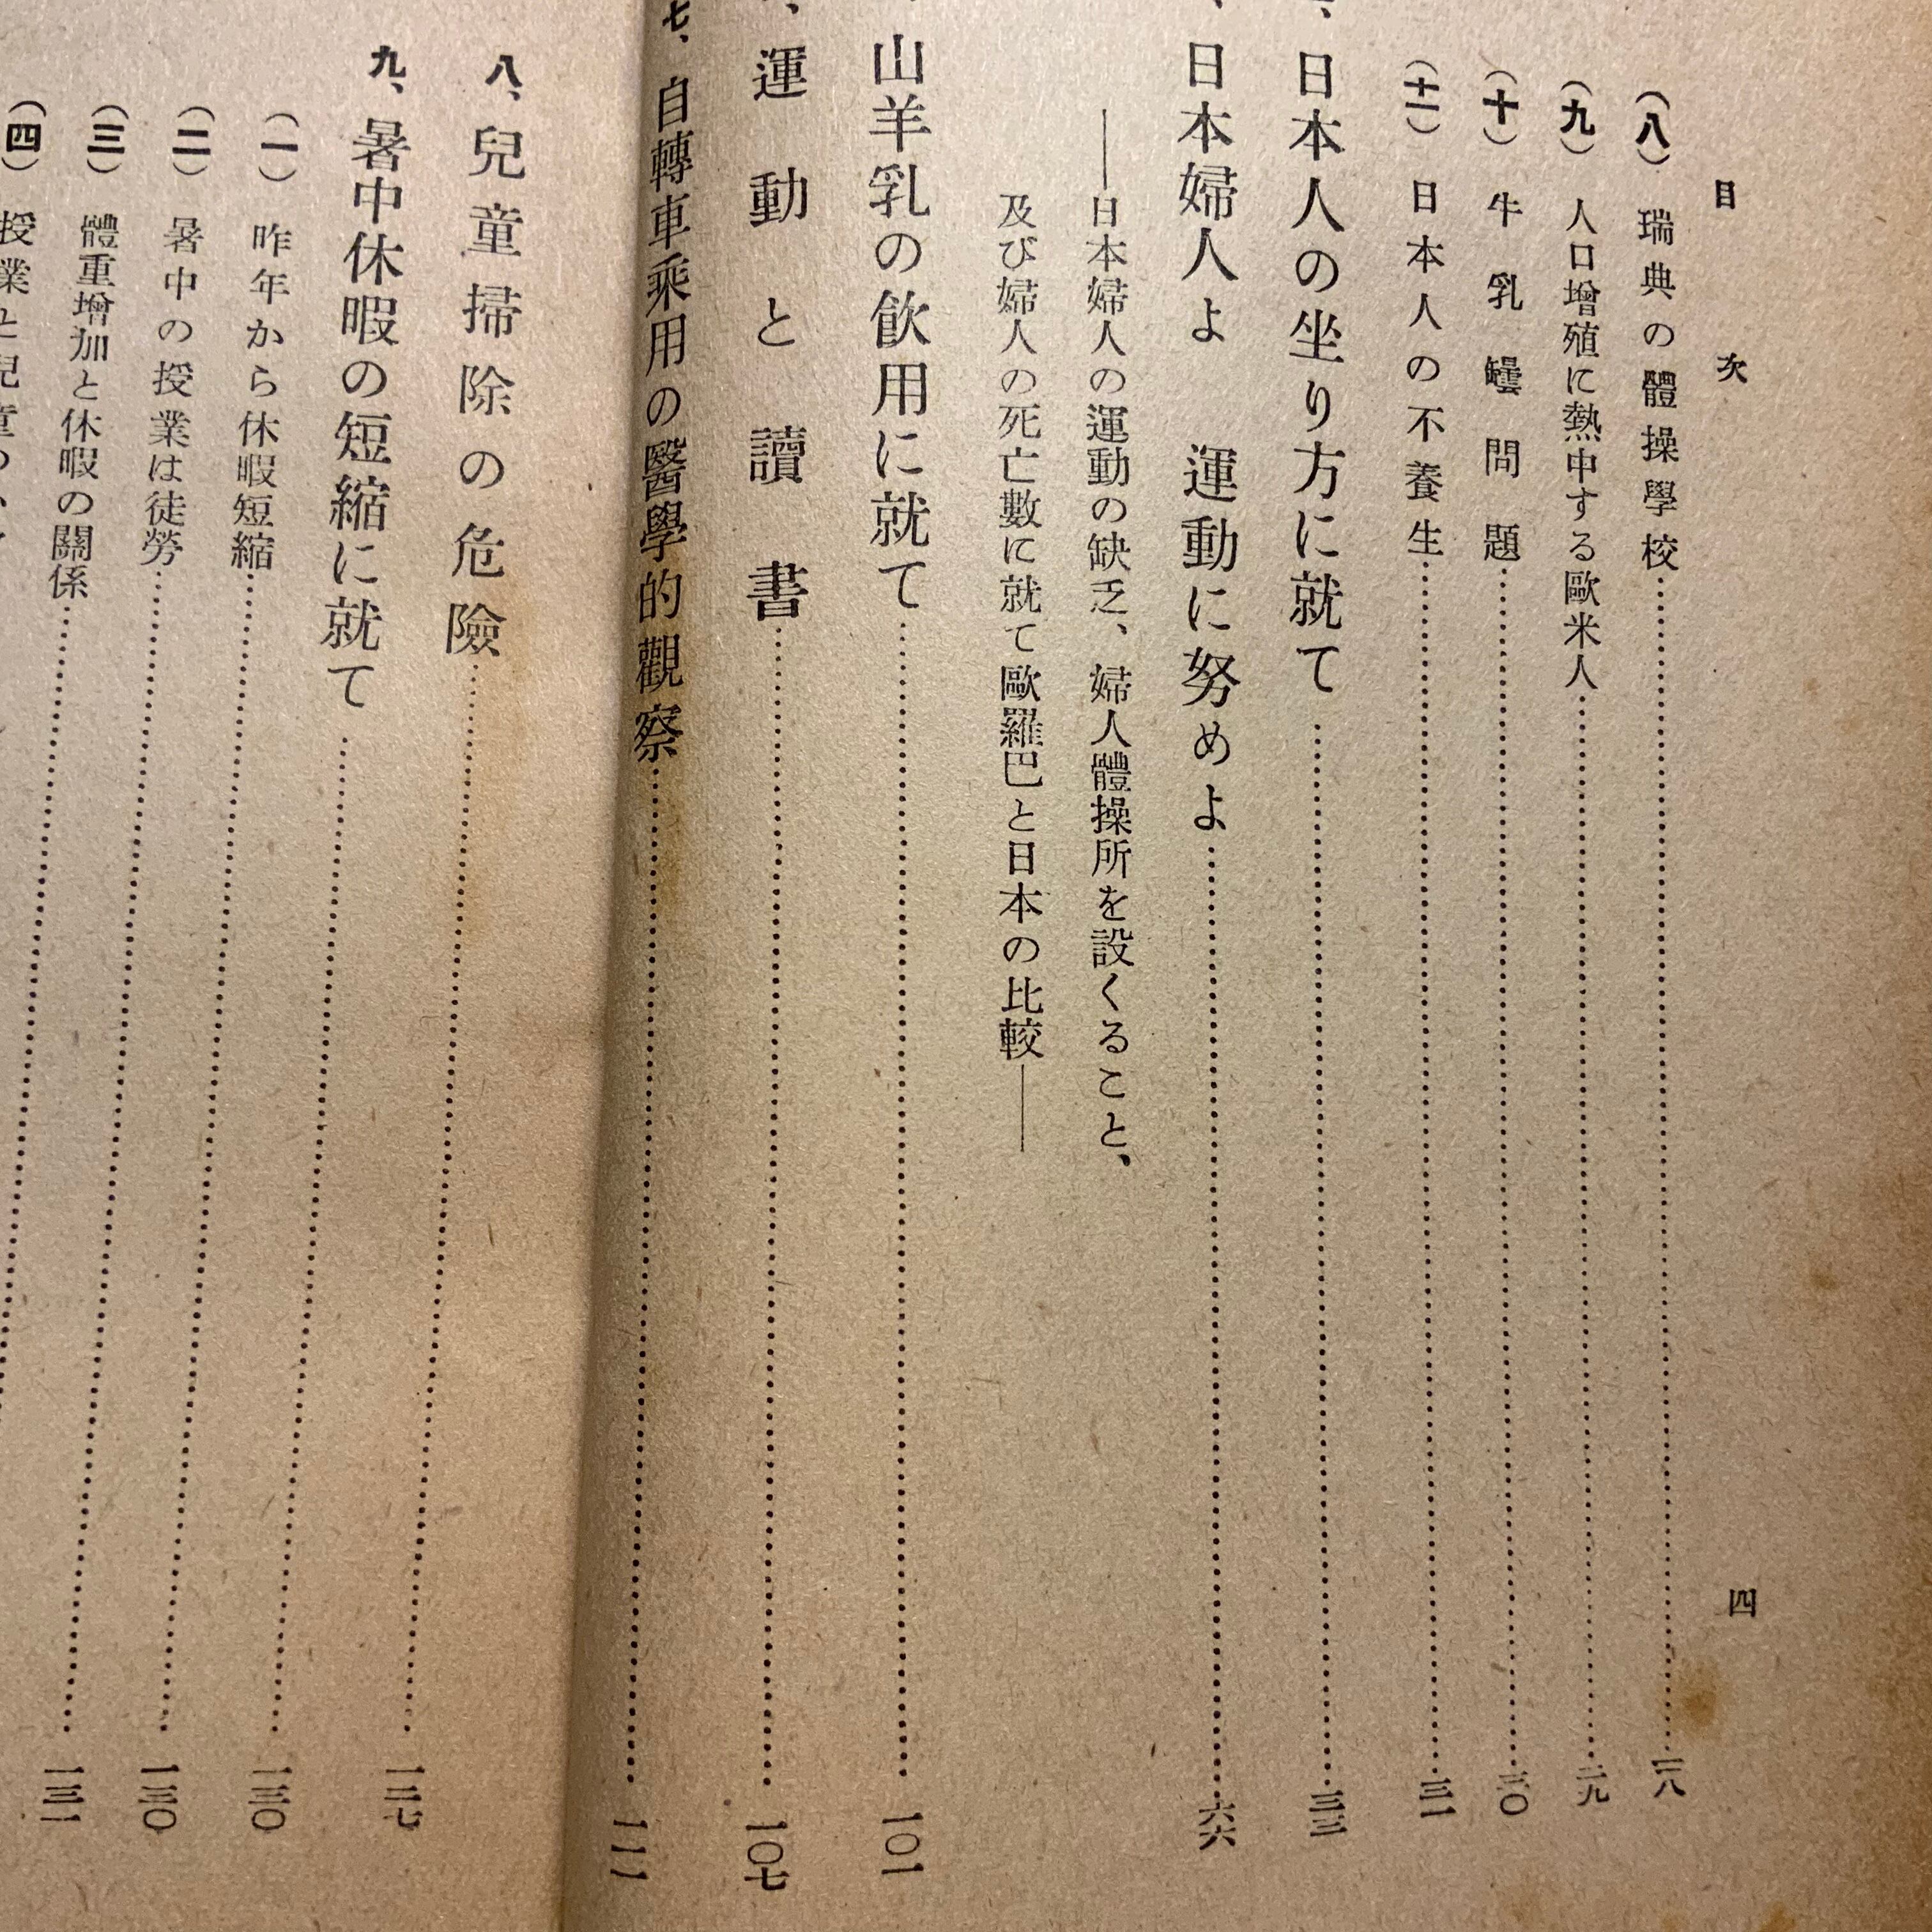 目次　四
（八）瑞典の體操學校……二八
（九）人口增殖に熱中する歐米人……二九
（十）牛乳罎問題……三〇
（十一）日本人の不養生……三一
、日本人の坐り方に就て……三三
、日本婦人よ　運動に努めよ……六六
―日本婦人の運動の缺乏、婦人體操所を設くること、
及び婦人の死亡數に就て歐羅巴と日本の比較―
山羊乳の飮用に就て……一〇一
、運動と讀書……一〇七
七、自轉車乘用の醫學的觀察……一一一
八、兒童掃除の危險……一二七
九、暑中休暇の短縮に就て……一三〇
（一）昨年から休暇短縮……一三〇
（二）暑中の授業は徒勞……一三一
（三）體重增加と休暇の關係
（四）授業と兒童の